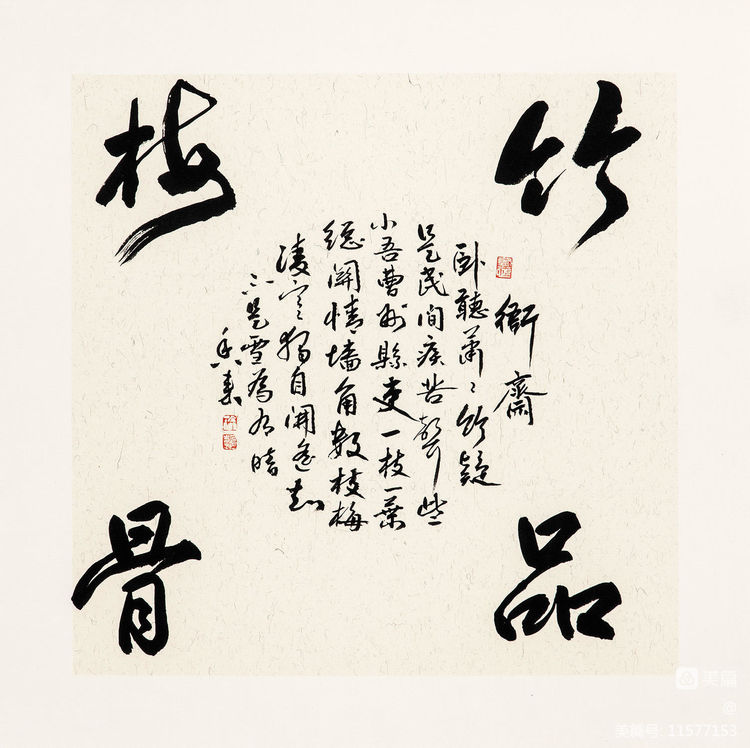 竹
品
梅
骨
衙齋
卧聽蕭〻竹疑
是民間疾苦聲些
小吾曹州縣吏一枝一葉
總關情墙角数枝梅
凌寒獨自開遥知
不是雪為有暗
香来
美篇
@
美篇号: 11577153